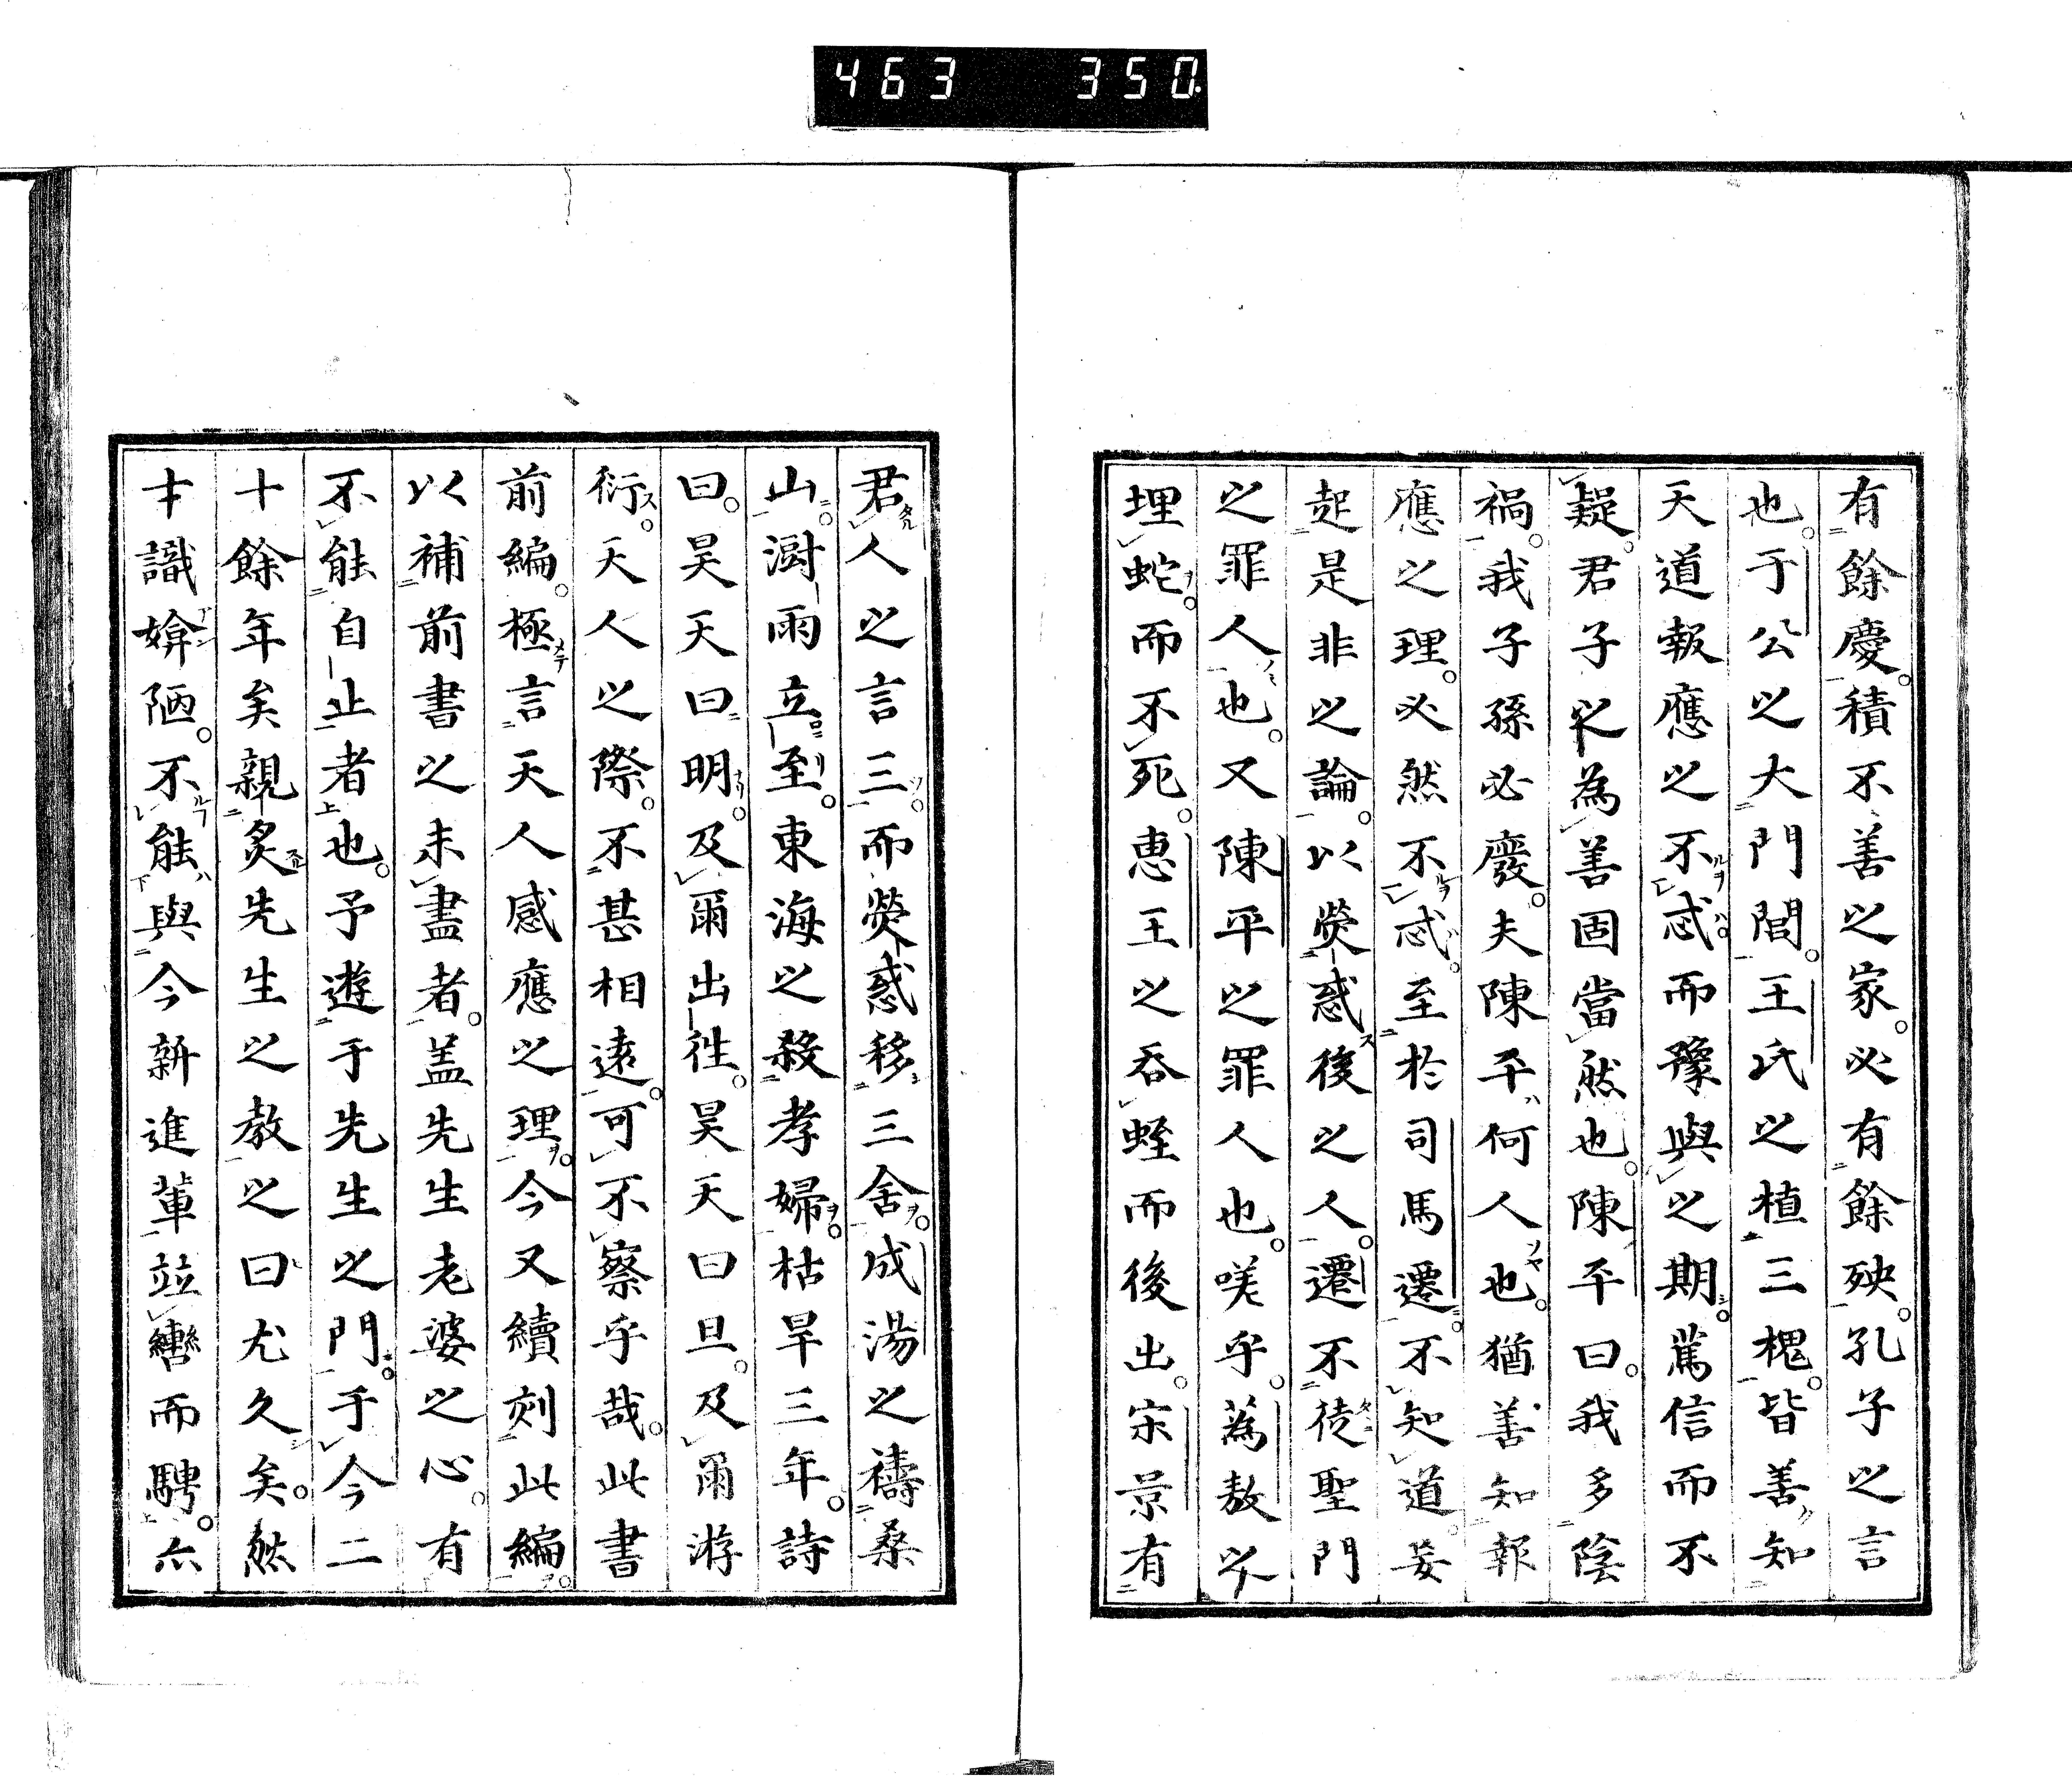 463 350
有餘慶積不善之家必有餘殃孔子之言
也于公之大門閭王氏之植三槐皆善知
天道報應之不忒而豫與之期篤信而不
疑君子之為善固當然也陳平曰我多陰
禍我子孫必廢夫陳平何人也猶善知報
應之理必然不忒至於司馬遷不知道妄
起是非之論以熒惑後之人遷不徒聖門
之罪人也又陳平之罪人也咲乎蒍敖以
埋蛇而不死惠王之吞蛭而後出宋景有
君人之言三而熒惑移三舍成湯之禱桑
山澍雨立至東海之殺孝婦枯旱三年詩
曰昊天曰明及爾出徃昊天曰旦及爾游
衍天人之際不甚相遠可不察乎哉此書
前編極言天人感應之理今又續刻此編
以補前書之未盡者盖先生老婆之心有
不能自止者也予遊于先生之門于今二
十餘年矣親炙先生之教之曰尤久矣然
才識媕陋不能與今新進軰竝轡而騁亦